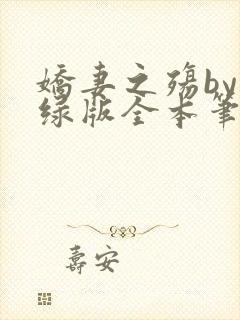 娇妻之殇by
绿版全本笔
寿安